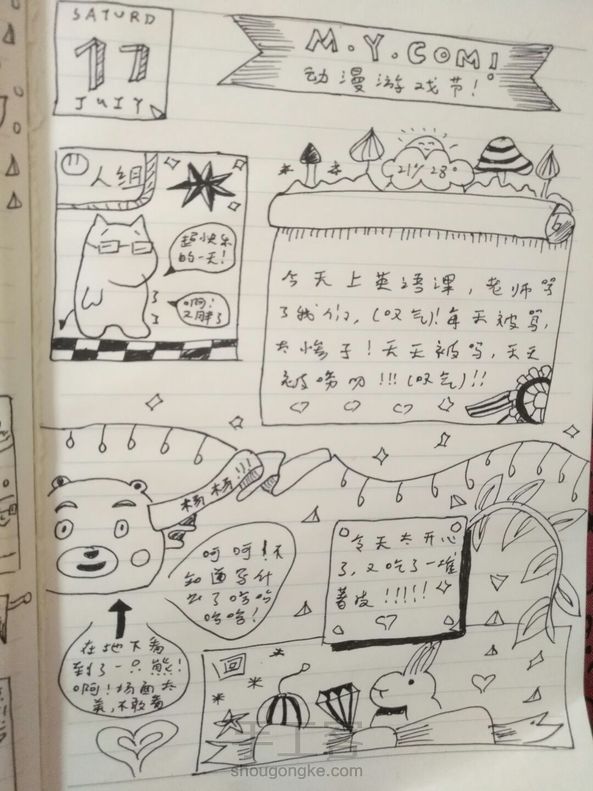 SATURD
17
JUIY
M.Y.COMI
动漫游戏节!
人组
21° 28°
超快乐
的一天!
啊!
又胖了
今天上英语课,老师骂
了我们,(叹气)!每天被骂,
太惨了!天天被骂,天天
被唠叨!!!(叹气)!!
杨杨!!!
呵呵!不
知道写什
么了哈哈
哈哈!
今天太开心
了,又吃了一堆
薯皮!!!!!
在地下看
到了一只熊!
啊!杨面太
美,不敢看
回
手工客
shougongke.com